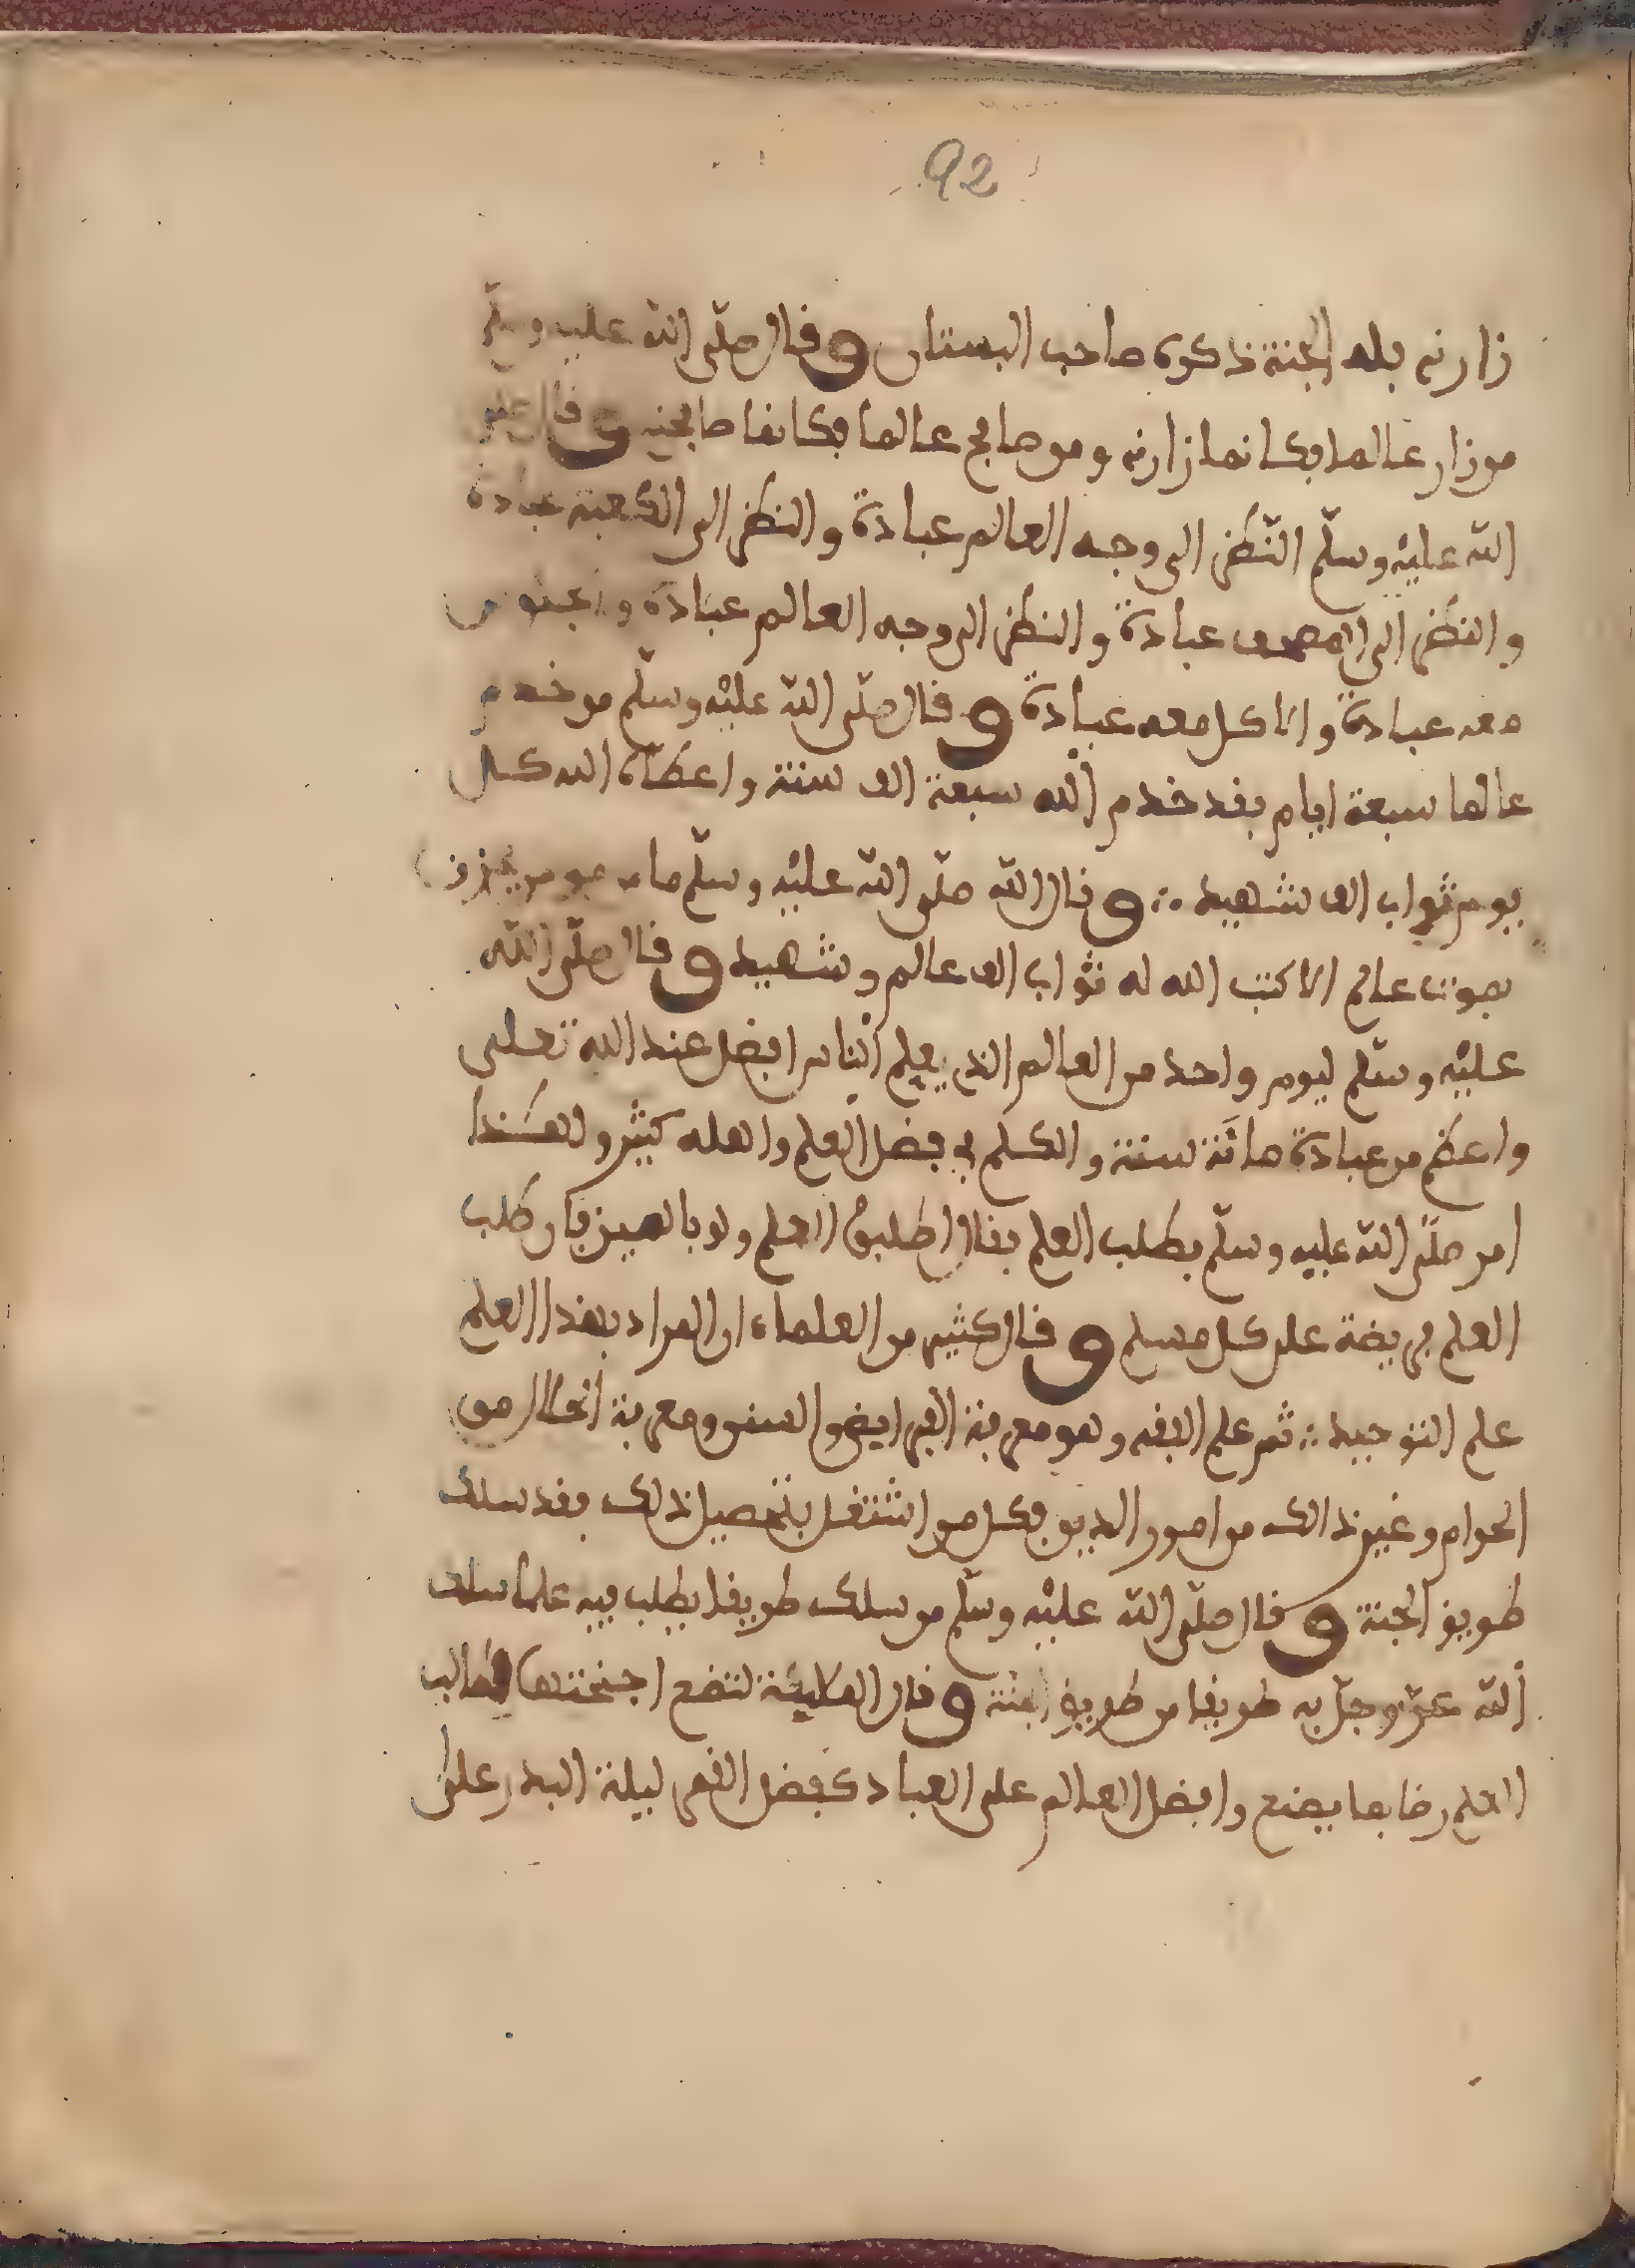 92
زارني فله الجنة ذكره صاحب البستان وقال صلى الله عليه وسلم
من زار عالما فكانما زارني ومن صافح عالما فكانما صافحني وقال صلى
الله عليه وسلم النظر الى وجه العالم عبادة والنظر الى الكعبة عبادة
والنظر الى المصحف عبادة والنظر الى وجه العالم عبادة والجلوس
معه عبادة والاكل معه عبادة وقال صلى الله عليه وسلم من خدم
عالما سبعة ايام فقد خدم الله سبعة الف سنة واعطاه الله كل
يوم ثواب الف شهيد ؞ وقال الله صلى الله عليه وسلم ما من مومن يحزن
بموت عالم الا كتب الله له ثواب الف عالم وشهيد وقال صلى الله
عليه وسلم ليوم واحد من العالم الذي يعلم الناس افضل عند الله تعلى
واعظم من عبادة مائة سنة والكلم في فضل العلم واهله كثير ولهكذا
امر صلى الله عليه وسلم بطلب العلم فقال اطلبوا العلم ولو بالصين فان طلب
العلم فريضة على كل مسلم وقال كثير من العلماء ان المراد بهذا العلم
علم التوحيد ؞ ثم علم الفقه وهو معرفة الفرايض والسنن ومعرفة الحلال من
الحرام وغير ذالك من امور الدين فكل من اشتغل بتحصيل ذلك فقد سلك
طريق الجنة وقال صلى الله عليه وسلم من سلك طريقا يطلب فيه علما سلك
الله عز وجل به طريقا من طريق الجنة وقال الملائكة لتضع اجنحتها لطالب
العلم رضا بما يصنع وافضل العالم على العباد كفضل القمر ليلة البدر على